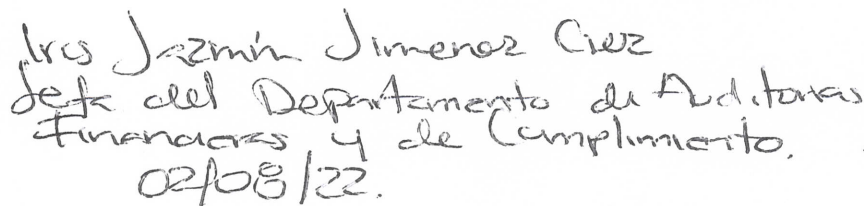 Iris Jazmín Jimenez Cruz
Jefa del Departamento de Auditorias
Financieras y de Cumplimiento.
02/08/22.